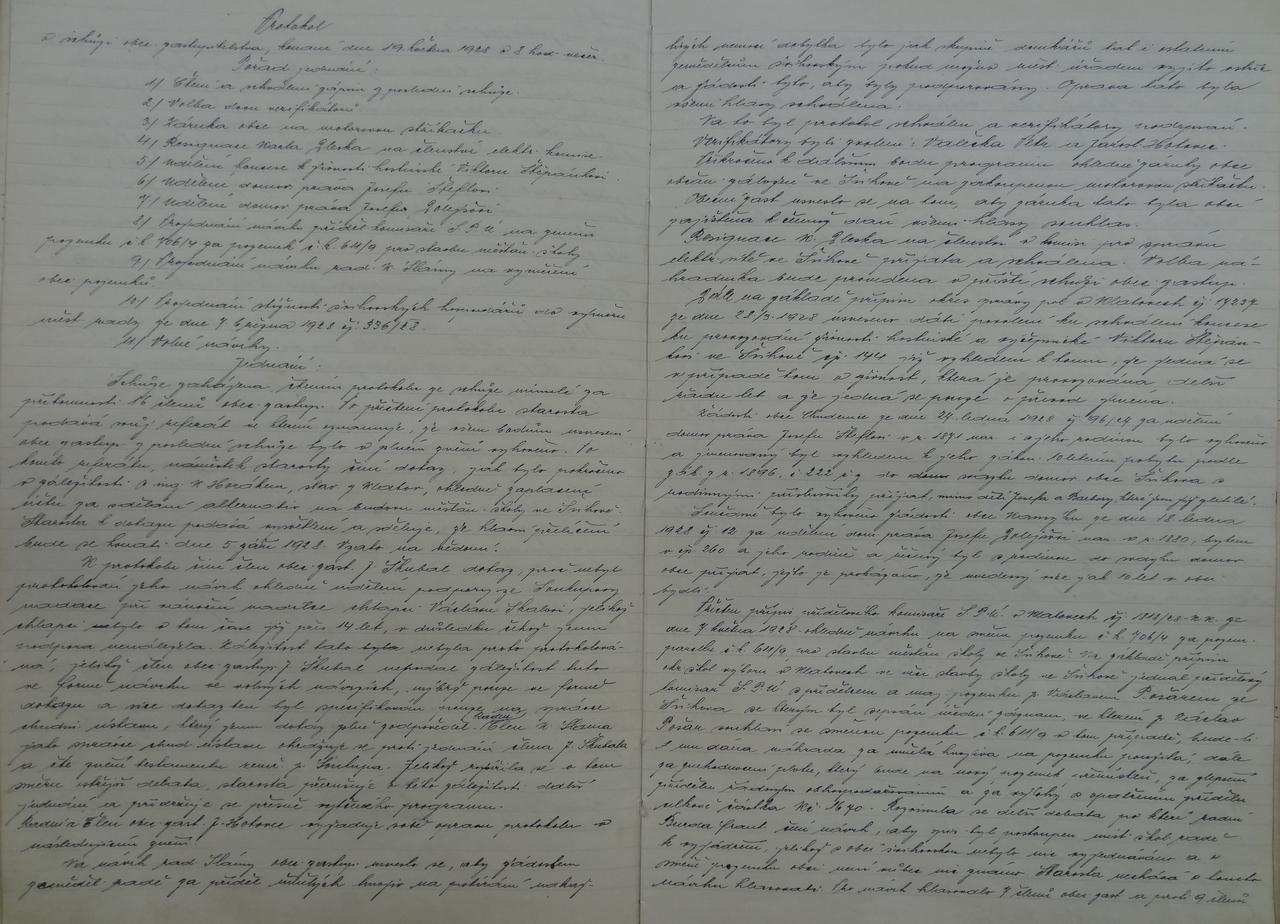 Protokol
o schůzi obec. zastupitelstva, konané dne 19. května 1928 o 8 hod. večer.
Pořad jednání:
1/ Čtení a schválení zápisu z poslední schůze.
2/ Volba dvou verifikátorů.
3/ Záruka obce na motorovou stříkačku.
4/ Resignace Karla Zleska na členství elektr. komise.
5/ Udělení koncese k živnosti hostinské Viktoru Štěpánkovi.
6/ Udělení domov. práva Josefu Šteflovi.
7/ Udělení domov. práva Josefu
8/ Projednání návrhu příděl. komisaře S.P.Ú. na změnu
pozemku č. k. 706/4 za pozemek č. k. 611/9 pro stavbu měšťan. školy.
9/ Projednání návrhu rad. K. Slámy na vyměření
obec. pozemků.
10/ Projednání stížnosti švihovských do výměru
měst. rady ze dne 7. března 1928 čj. 336/28.
11/ Volné návrhy.
Jednání:
Schůze zahájena čtením protokolu ze schůze minulé za
přítomnosti 16 členů obec. zastup. Po přečtení protokolu starosta
podává svůj referát ve kterém oznamuje, že všem bodům usnesení
obec. zastup. z poslední schůze bylo v plném znění vyhověno. Po
tomto referátu, náměstek starosty činí dotaz, jak bylo pokročeno
v záležitosti p. ing. K. Horákem, stav. z Klatov, ohledně zaplacení
účtu za udělání alternativ na budovu měšťan. školy ve Švihově.
Starosta k dotazu podává vysvětlení a sděluje, že hlavní přelíčení
bude se konati dne 5. září 1928. Vzato na vědomí.
K protokolu činí člen obec. zast. J. Skubal dotaz, proč nebyl
protokolován jeho návrh ohledně udělení podpory ze Soukupovy
nadace při chlapci Václavu Skalovi, jelikož
chlapci nebylo v tom čase již přes 14 let, v důsledku čehož jemu
podpora nenáležela. Záležitost tato byla nebyla proto protokolová-
na, jelikož člen obec. zastup. J. Skubal nepodal záležitost tuto
ve formě návrhu ve volných návrzích, nýbrž pouze ve formě
dotazu a více dotaz ten byl specifikován pouze na správce
chudin. ústavu, který jemu dotaz plně zodpověděl. Radní Člen K. Sláma
jako správce chud. ústavu ohrazuje se proti jednání člena J. Skubala
a čte znění testamentu zemř. p. Soukupa. Jelikož rozvířila se o tom
směru ostřejší debata, starosta přerušuje o této záležitosti další
jednání a přidržuje se přísně vytčeného programu.
Radní a Člen obec. zast. J. Hotovec vyžaduje sobě opravu protokolu v
následujícím znění.
Na návrh rad. Slámy obec. zastup. usneslo se, aby žádostem
zeměděl. radě za příděl umělých hnojiv na potírání nakaž-
livých nemocí dobytka bylo jak skupině domkářů tak i ostatním
zemědělcům švihovským pokud možno měst. úřadem vyjito vstříc
a žádosti tyto, aby byly podporovány. Oprava tato byla
všemi hlasy schválena.
Na to byl protokol schválen a verifikátory podepsán.
Verifikátory byli zvoleni: Valečka Petr a Jarosl. Hotovec.
Přikročeno k dalšímu bodu programu ohledně záruky obce
občan. záložně ve Švihově na zakoupenou motorovou stříkačku.
Obecní zast. usneslo se na tom, aby záruka tato byla obcí
zajištěna k čemuž dáno všemi hlasy souhlas.
Resignace K. Zleska na členství v komisi pro správu
elektr. sítě ve Švihově přijata a schválena. Volba ná-
hradníka bude provedena v příští schůzi obec. zastup.
Dále na základě přípisu okres. správy pol. v Klatovech čj. 17237
ze dne 28/3. 1928 usneseno dáti povolení ku schválení koncese
ku provozování živnosti hostinské a výčepnické Viktoru Štěpán-
kovi ve Švihově čp. 144 již vzhledem k tomu, že jedná se
v případě tom o živnost, která je provozována delší
řadu let a že jedná se pouze o převod jmena.
Žádosti obec. Chudenice ze dne 24. ledna 1928 čj. 96/24 za udělení
domov. práva Josefu Šteflovi v r. 1871 nar. i s jeho rodinou bylo vyhověno
a jmenovaný byl vzhledem k jeho zákon. 10letém pobytu podle
z. z r. 1896, č. 222 ř. z. do svazku domov. obce Švihova s
rodinnými příslušníky přijat, mimo dětí Josefa a Barbory, které jsou již zletilé.
Současně bylo vyhověno žádosti obce ze dne 18. ledna
1928 čj. 12 za udělení dom. práva Josefu nar. v r. 1880, bytem
v čp. 260 a jeho rodině a řečený byl s rodinou do svazku domov.
obce přijat, ježto je prokázáno, že uvedený více jak 10 let v obci
bydlí.
Přečten přípis přídělového komisaře S.P.Ú. v Klatovech čj. 1812/28 ze
dne 7. května 1928 ohledně návrhu na směnu pozemku č. k. 706/4 za pozem.
parcelu č. k. 611/9 pro stavbu měšťan. školy ve Švihově. Na základě přípisu
okr. škol. výboru v Klatovech ve věci stavby školy ve Švihově jednal přídělový
komisař S.P.Ú. s přídělcem a maj. pozemku p. Václavem Požárem ze
Švihova se kterým byl sepsán úřední záznam, ve kterém p. Václav
Požár souhlasí se směnou pozemku č. k. 611/9 v tom případě, bude-li
jemu dána náhrada za umělá hnojiva na pozemku použitá, dále
za plotu, který bude na nový pozemek přemístěn, za zlepšení
přídělu řádným obhospodařováním a za výlohy s opatřením přídělu
celkově částka Kč 1640. Rozvinula se delší debata po které radní
Burda Frant. činí návrh, aby spis byl postoupen místní škol. radě
k vyjádření, jelikož s obcí švihovskou nebylo nic vyjednáváno a o
směně pozemku obci není vůbec nic známo. Starosta nechává o tomto
návrhu hlasovati. Pro návrh hlasovalo 7 členů obec. zast. a proti 9 členů